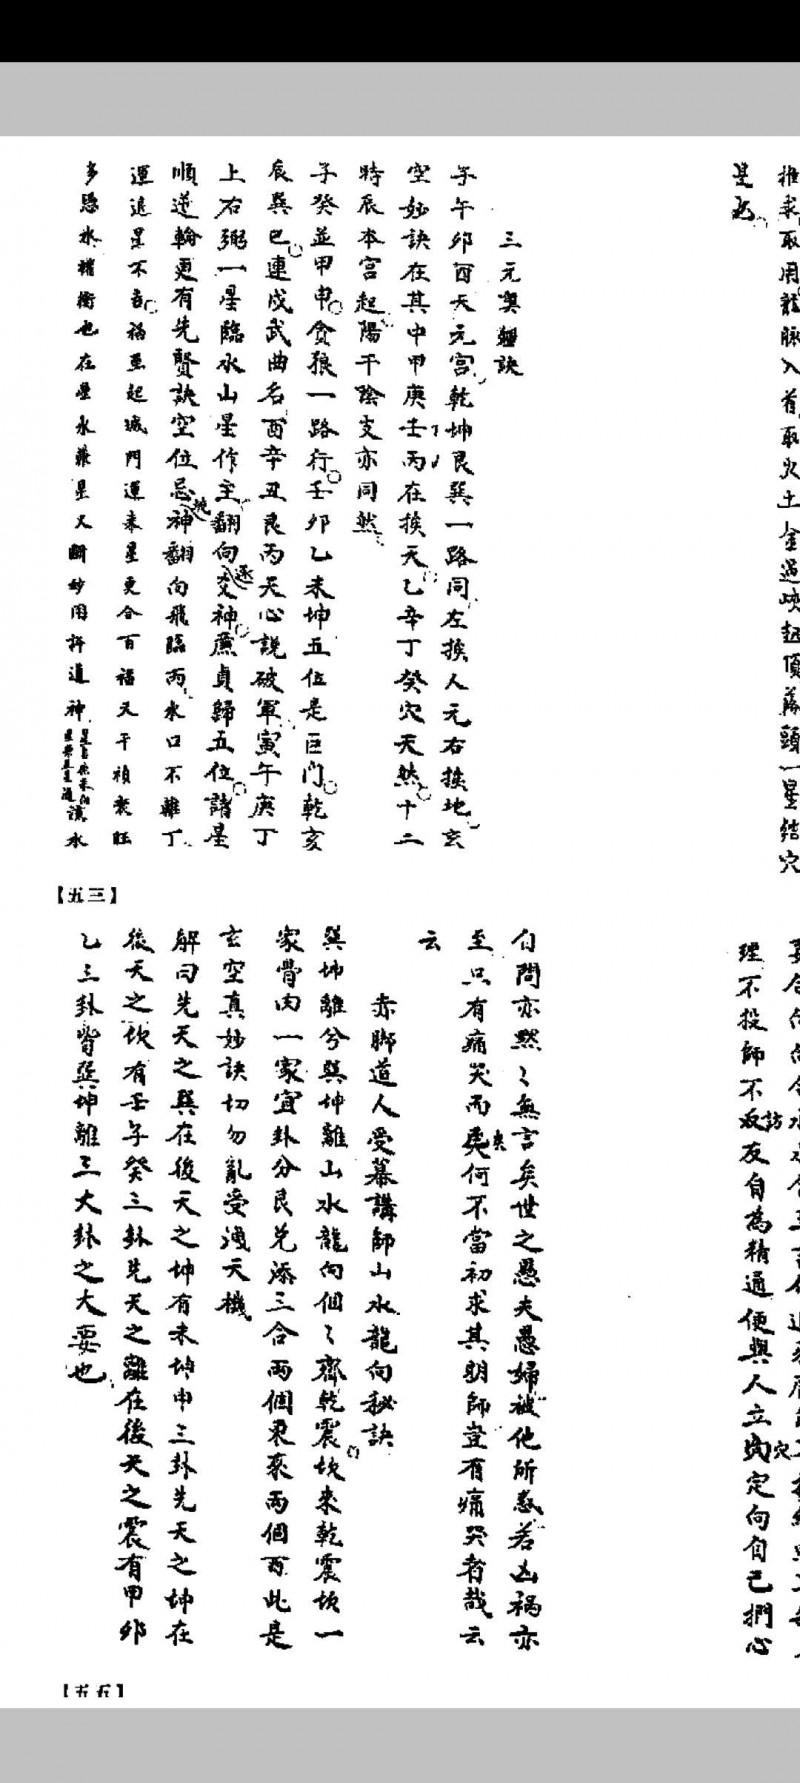 推求取用龍脉入首取穴土金過峽起頂落頭一星結穴
是也
三元奧疆訣
子午卯酉天元宮乾坤艮巽一路同左挨人元右挨地玄
空妙訣在其中甲庚壬丙在挨天乙辛丁癸穴天然十二
時辰本宮起陽干陰支亦同然
子癸並甲申貪狼一路行壬卯乙未坤五位是巨门乾亥
辰巽巳連戌武曲名酉辛丑艮丙天心説破軍寅午庚丁
上右弼一星臨水山星作主翻向逐交神廉貞歸五位諸星
順逆輪更有先賢訣空位忌神翻向飛臨丙水口不離丁
運退星不吉禍亟起城門運來星更合百福又千禎衰旺
多憑水權衡也在星水兼星又斷妙用許通神
【五三】
理不投師不訪友自為精通便與人立穴定向自己捫心
自問亦默々無言矣世之愚夫愚婦被他所惑若凶禍亦
至只有痛哭而矣何不當初求其明師豈有痛哭者哉云
云
赤脚道人受幕講師山水龍向秘訣
巽坤離兮巽坤離山水龍向個々齊乾震坎來乾震坎一
家骨肉一家宜卦分艮兑添三合兩個東來兩個西此是
玄空真妙訣切勿亂受洩天機
解曰先天之巽在後天之坤有未坤申三卦先天之坤在
後天之坎有壬子癸三卦先天之離在後天之震有甲卯
乙三卦皆巽坤離三大卦之大要也
【五五】